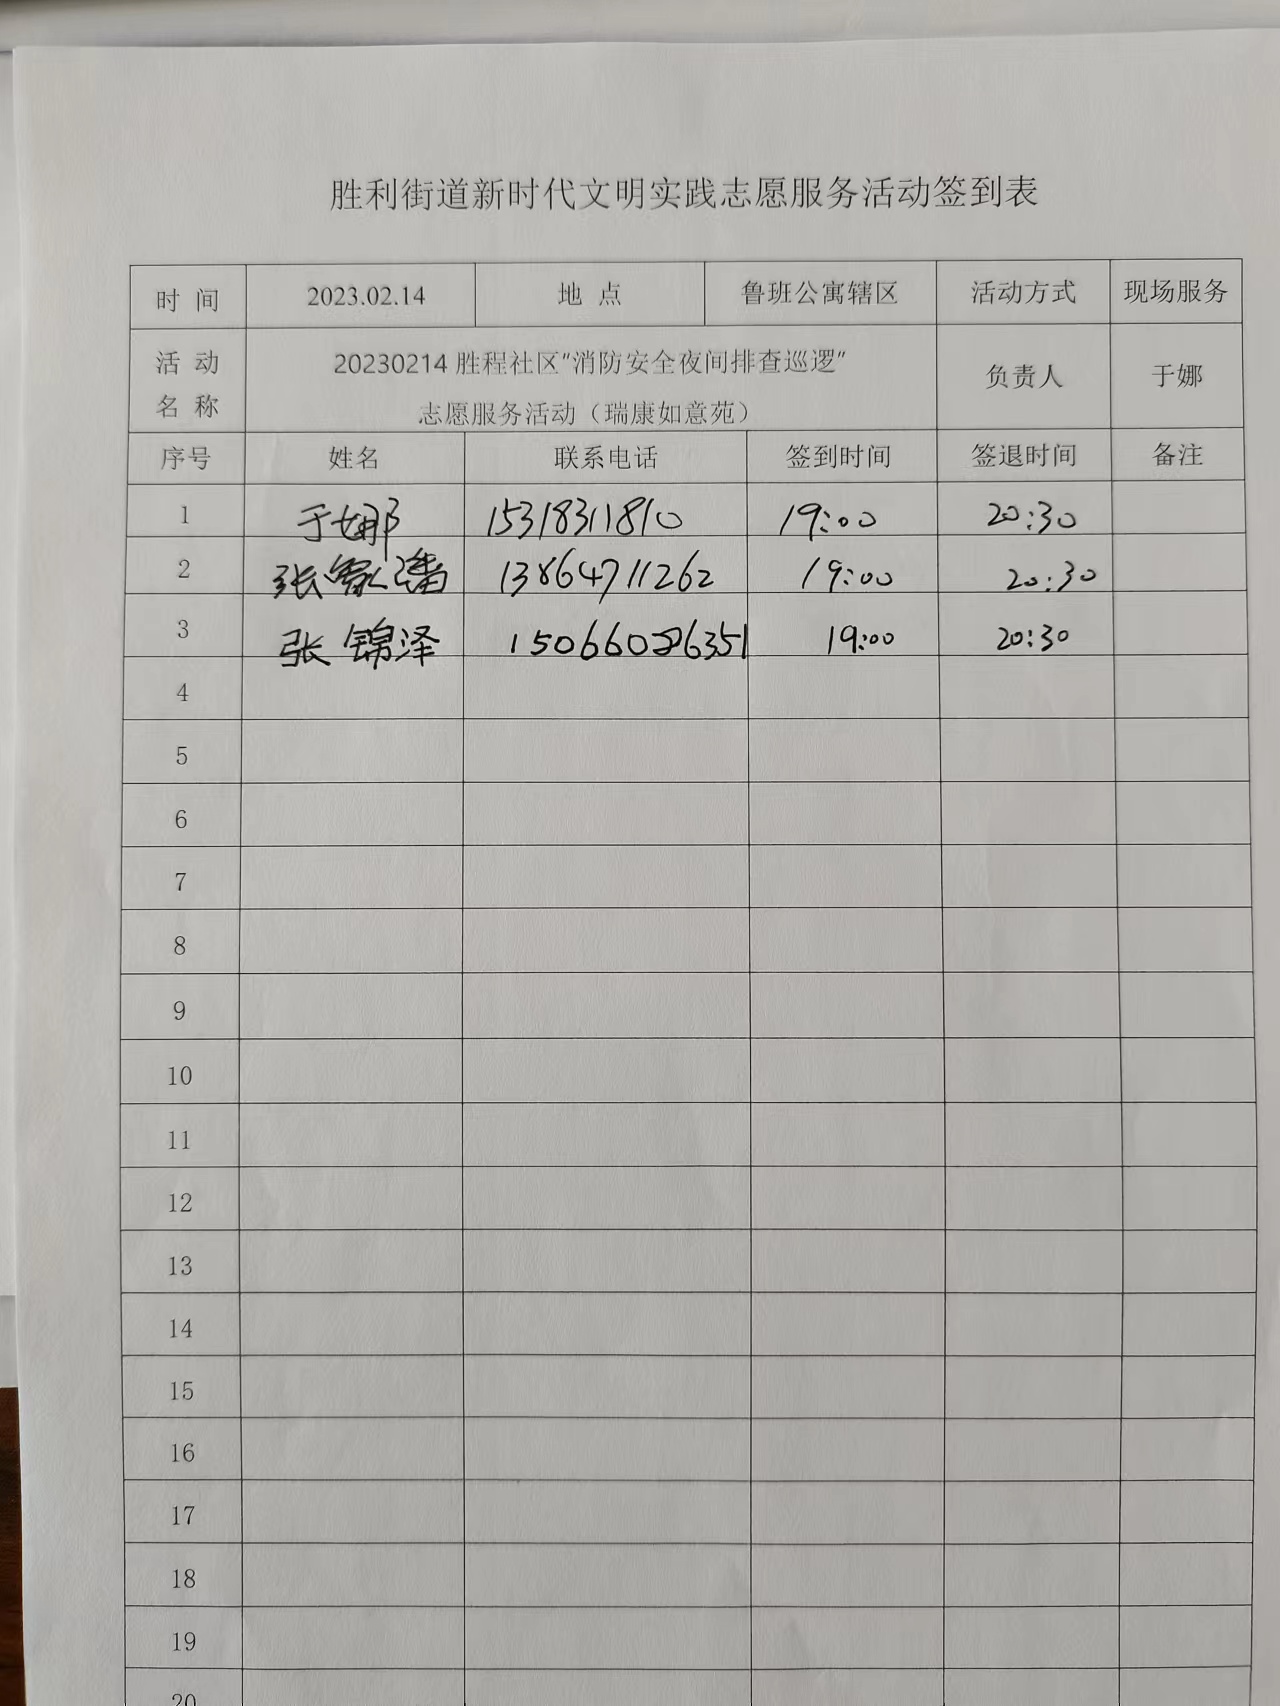 胜利街道新时代文明实践志愿服务活动签到表
时 间 2023.02.14 地 点 鲁班公寓辖区 活动方式 现场服务
活 动 名 称 20230214 胜程社区"消防安全夜间排查巡逻" 负责人 于娜
志愿服务活动（瑞康如意苑）
序号 姓名 联系电话 签到时间 签退时间 备注
1 于娜 15318311810 19:00 20:30
2 张 13864711262 19:00 20:30
3 张锦泽 19:00 20:30
4
5
6
7
8
9
10
11
12
13
14
15
16
17
18
19
20